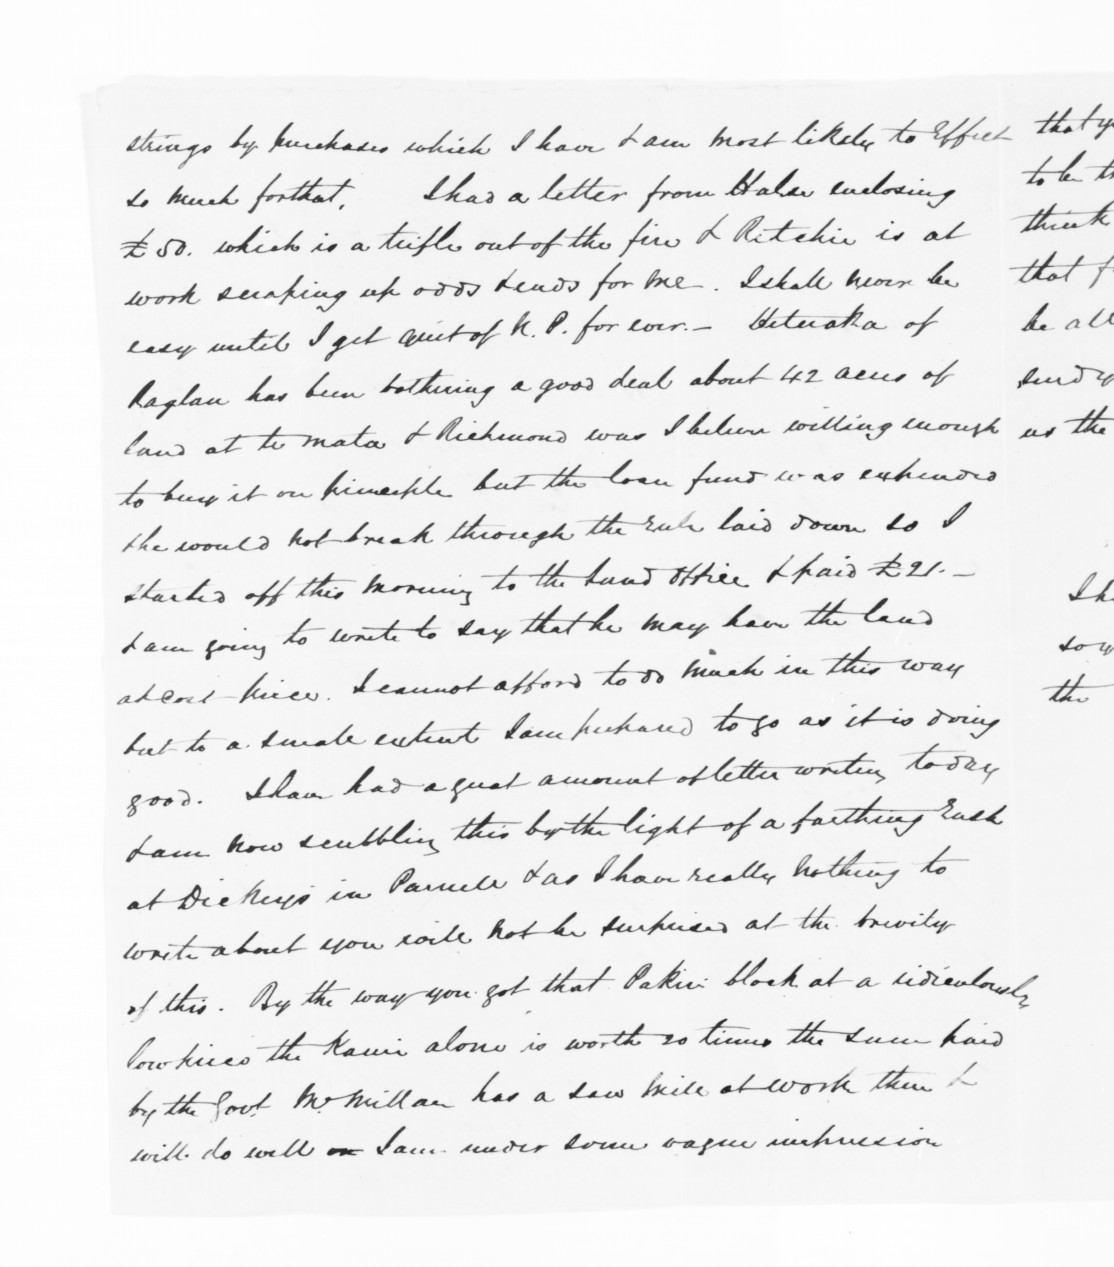 strings by purchases which I have & am most likely to Effect
so much for that. I had a letter from Halse enclosing
£50. which is a trifle out of the fire & Ritchie is at
work scraping up odds & ends for me. I shall never be
easy until I get quit of N. P. for ever. — Hetaraka of
Raglan has been bothering a good deal about 42 acres of
land at te mata & Richmond was I believe willing enough
to buy it on principle but the loan fund was expended
& he would not break through the rule laid down so I
started off this morning to the Land Office & paid £21. —
& am going to write to say that he may have the land
at cost price. I cannot afford to do much in this way
but to a small extent I am prepared to go as it is doing
good. I have had a great amount of letter writing today
& am now scribbling this by the light of a farthing Rush
at Dickeys in Parnell & as I have really nothing to
write about you will not be surprised at the brevity
of this. By the way you got that Pakiri block at a ridiculously
low price the Kauri alone is worth 20 times the sum paid
by the Govt McMillan has a saw mill at work there &
will do well I am under some vague impression
that
to be
think
that
be all
send
us the
the